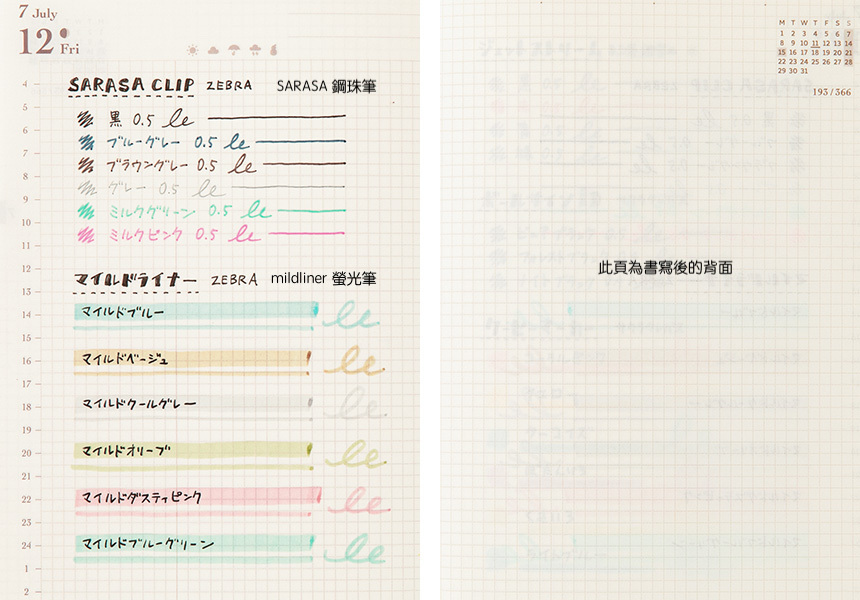 7 July
12 Fri
SARASA CLIP ZEBRA SARASA 鋼珠筆
黒 0.5 le
ブルーグレー 0.5 le
ブラウングレー 0.5 le
グレー 0.5 le
ミルクグリーン 0.5 le
ミルクピンク 0.5 le
マイルドライナー ZEBRA mildliner 螢光筆
マイルドブルー le
マイルドベージュ le
マイルドクールグレー le
マイルドオリーブ le
マイルドダスティピンク le
マイルドブルーグリーン le
4
5
6
7
8
9
10
11
12
13
14
15
16
17
18
19
20
21
22
23
24
1
2
M T W T F S S
1 2 3 4 5 6 7
8 9 10 11 12 13 14
15 16 17 18 19 20 21
22 23 24 25 26 27 28
29 30 31
193/366
此頁為書寫後的背面